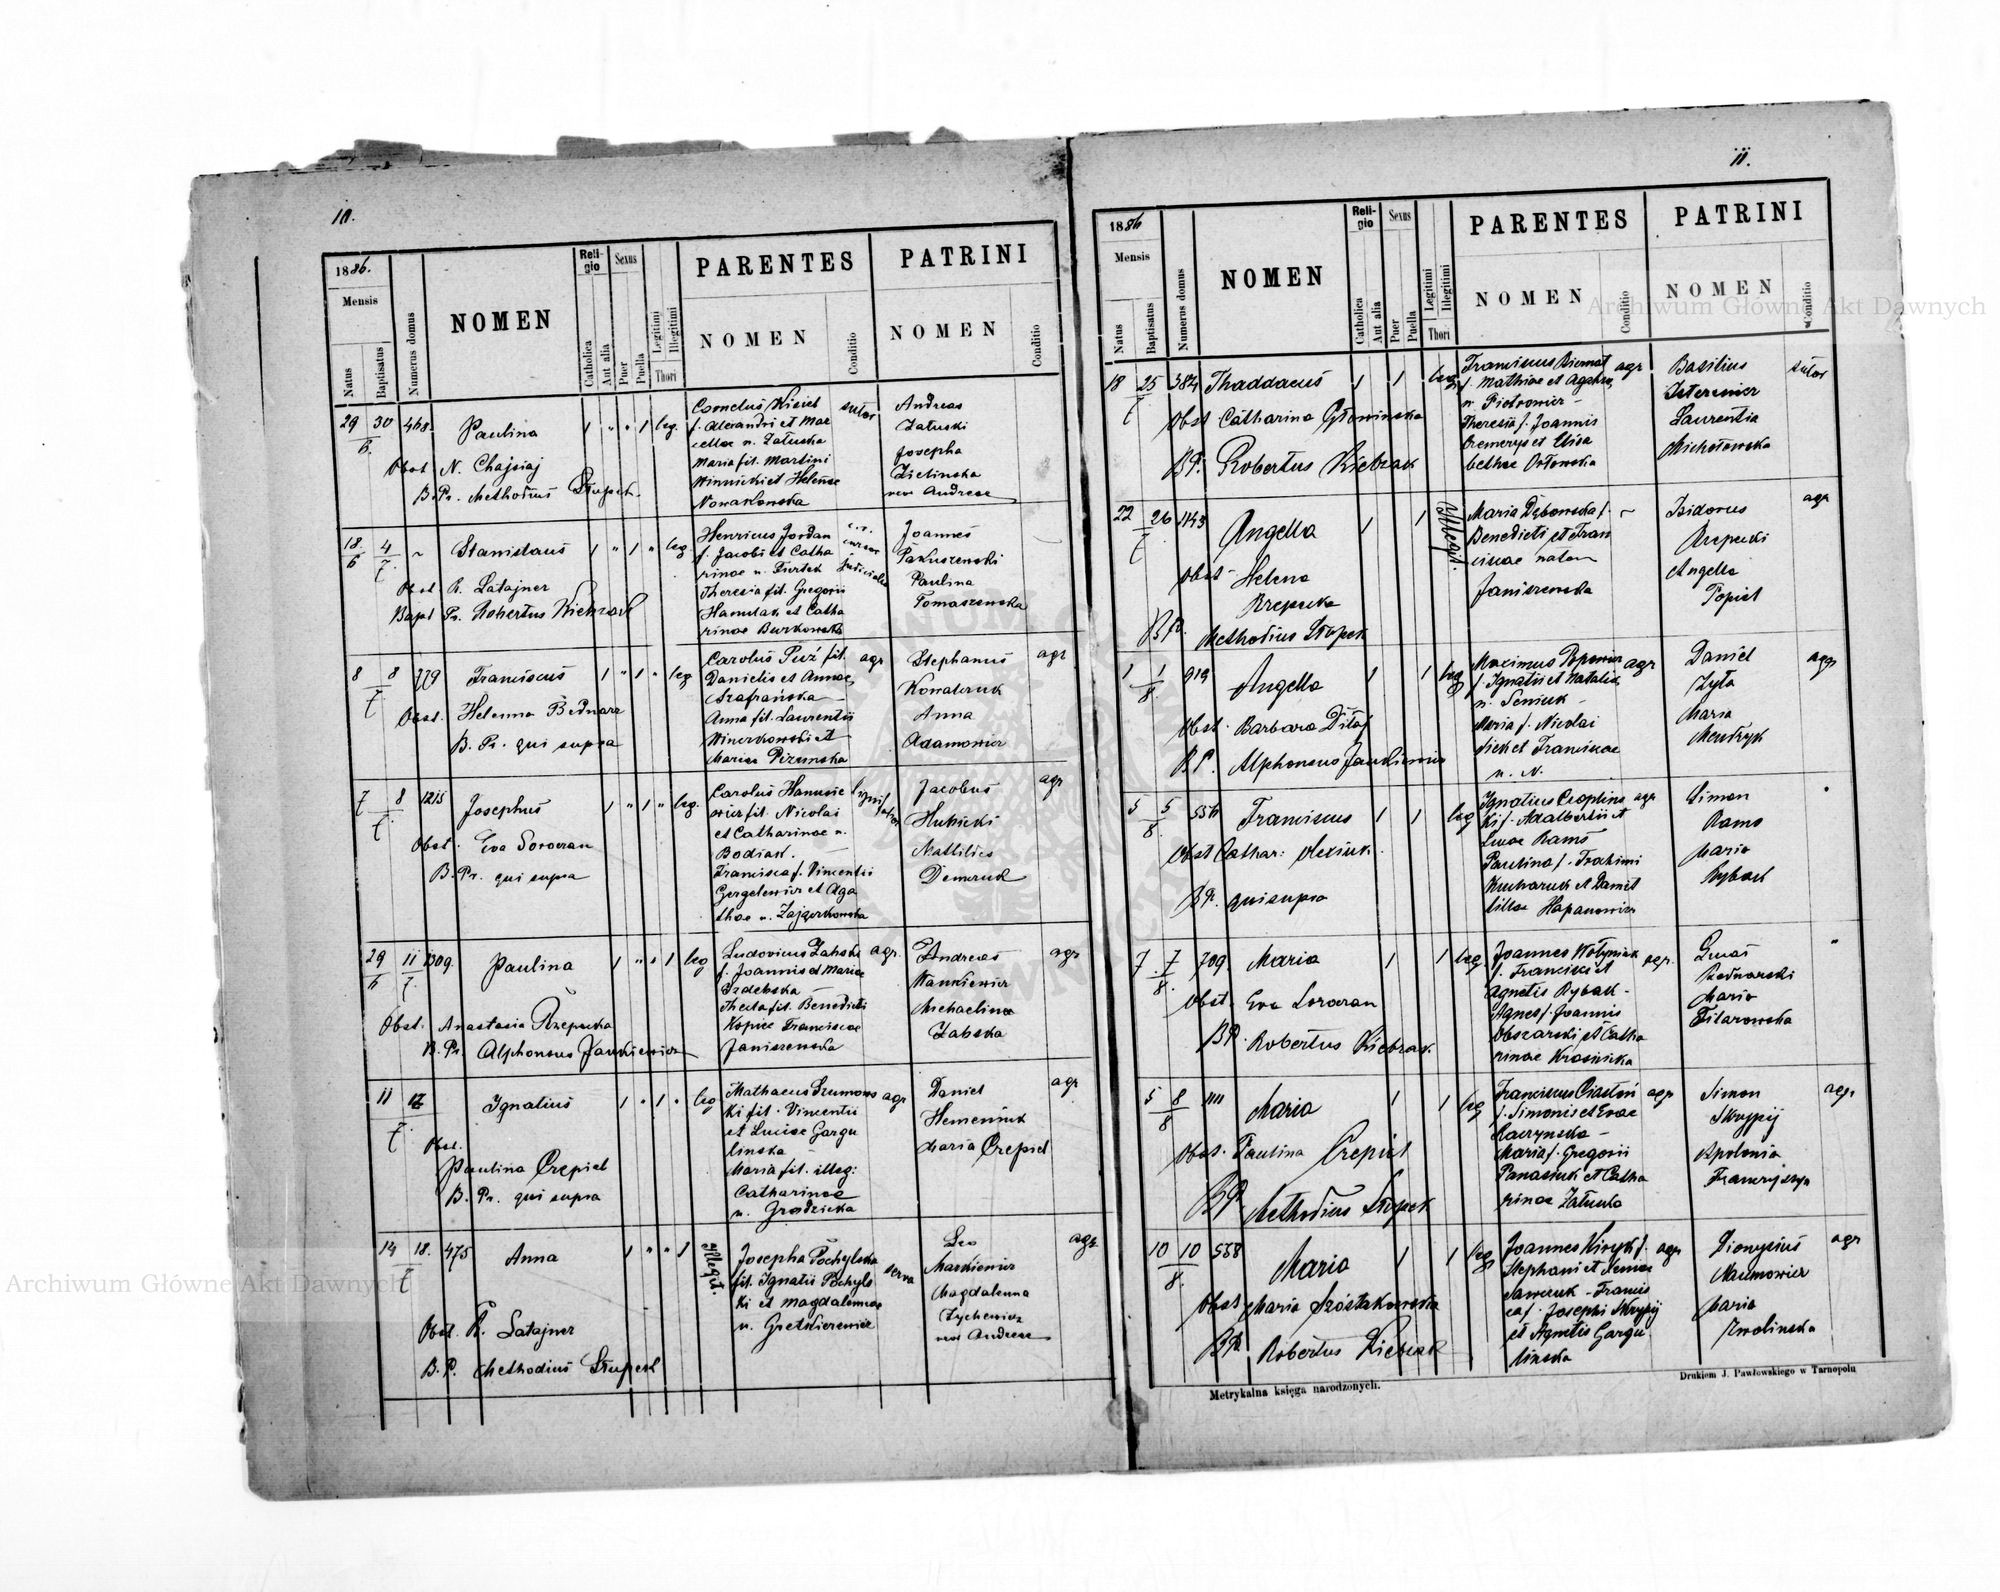 10.
1886.
Mensis
Natus
Baptisatus
Numerus domus
NOMEN
Reli-
gio
Catholica
Aut alia
Sexus
Puer
Puella
Legitimi
Illegitimi
Thori
PARENTES
NOMEN
Conditio
PATRINI
NOMEN
Conditio
29 30 468. Paulina 1 " " 1 leg.
6.
Obst. N.
B. Pr. Methodius
Cornelius Kisiel sutor
f. Alexandri et Mar
cellae n. Załuska
Maria fil. Martini
Winnicki et Helenae
Nowakowska
Andreas
Załuski
Josepha
Zielinska
18. 4 ~ Stanislaus 1 " 1 " leg.
6 7.
Obst. R. Latajner
Bapt. Pr. Robertus Kiebzak
Henricus Jordan
f. Jacobi et Catha
rinae n. Turtek
Theresia fil. Gregorii
et Catha
rinae Burkowska
Joannes
Pakuszewski
Paulina
Tomaszewska
8 8 279 Franciscus 1 " 1 " leg
7.
Obst. Helenna Bednarz
B. Pr. qui supra
Carolus fil. agr
Danielis et Annae
Szafrańska
Anna fil. Laurentii
et
Mariae
Stephanus agr
Kowalczuk
Anna
Adamowicz
7 8 1215 Josephus 1 " 1 " leg.
7.
Obst. Eva Soroczan
B. Pr. qui supra
Carolus Hanusie
wicz fil. Nicolai
et Catharinae n.
Bodiak.
Francisca f. Vincentii
Gergelewicz et Aga
thae n. Zajączkowska
Jacobus agr
Hubicki
Demczuk
29 11 1309. Paulina 1 " " 1 leg
6 7.
Obst. Anastasia Rzepecka
B. Pr. Alphonsus Jankiewicz
Ludovicus Zabski agr.
f. Joannis et Mariae
Izdebska
Thecla fil. Benedicti
Kopiec Franciscae
Janiszewska
Andreas agr
Wankiewicz
Michaelina
Zabska
11 12 Ignatius 1 " 1 " leg
7.
Obst.
Paulina Czepiel
B. Pr. qui supra
Mathaeus Szumows agr
ki fil. Vincentii
et Luciae Gargu
linska
Maria fil. illeg:
Catharinae
n. Grodzicka
Daniel agr
Hemeniuk
Maria Czepiel
14 18. 475 Anna 1 " " 1 Illegit.
7
Obst. R. Latajner
B. P. Methodius
Josepha Pochylska serva
fil. Ignatii Pochyls
ki et Magdalennae
n.
Leo agr.
Markiewicz
Magdalenna
Zychewicz
11.
1886
Mensis
Natus
Baptisatus
Numerus domus
NOMEN
Reli-
gio
Catholica
Aut alia
Sexus
Puer
Puella
Legitimi
Illegitimi
Thori
PARENTES
NOMEN
Conditio
PATRINI
NOMEN
Conditio
18 25 384 Thaddaeus 1 1 leg
7
Obst Catharina Głowinska
B P. Robertus Kiebzak
Franciscus Biernat agr
f. Mathiae et Agathae
n. Pietrowicz
Theresia f. Joannis
et Elisa
bethae Orłowska
Basilius sutor
Laurentia
Michałowska
22 26 1143 Angella 1 1 Illegit.
7.
Obst - Helena
Rzepecka
B P. Methodius
Maria Dębowska f. ~
Benedicti et Fran
ciscae natae
Janiszewska
Isidorus agr
Rzepecki
Angella
Popiel
1 1 919 Angella 1 1 leg
8.
Obst. Barbara
B P. Alphonsus Jankiewicz
Maximus Popowicz agr
f. Ignatii et Nataliae
n. Seniuk
Maria f. Nicolai
et Franciscae
n. N.
Daniel agr
Zyta
Maria
Mendzyk
5 5 556 Franciscus 1 1 leg
8.
Obst Cathar: Olexiuk.
B P. qui supra
Ignatius Czeplins agr
ki f. Adalberti et
Luciae Rams
Paulina f. Trohimi
Kucharuk et Domit
tillae Hapanowicz
Simon "
Rams
Maria
Rybak
7. 7 709. Maria 1 1 leg.
8.
Obst. Eva Soroczan
B P. Robertus Kiebzak
Joannes Wołyniak agr.
f. Francisci et
Agnetis Rybak -
Agnes f. Joannis
Obszarski et Catha
rinae Krasicka
Lucas "
Bednarski
Maria
Filarowska
5 8 1111 Maria 1 1 leg
8
Obst. Paulina Czepiel
B P. Methodius
Franciscus Ciastoń agr
f. Simonis et Evae
Raczynska -
Maria f. Gregorii
Panasiuk et Catha
rinae Załuska
Simon agr
Skrypij
Apolonia
10 10 558 Maria 1 1 leg
8.
Obst Maria Szóstakowska
B P. Robertus Kiebzak
Joannes Kiryk f. agr
Stephani et Annae
Sawczuk - Francis
ca f. Josephi Skrypij
et Agnetis Gargu
linska
Dionysius agr
Naumowicz
Maria
Zwolinska
Metrykalna księga narodzonych.
Drukiem J. Pawłowskiego w Tarnopolu
Archiwum Główne Akt Dawnych
Archiwum Główne Akt Dawnych